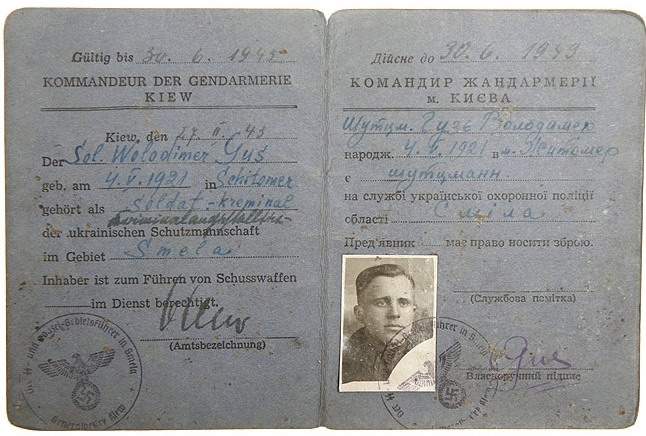 Gültig bis 30. 6. 1943
KOMMANDEUR DER GENDARMERIE
KIEW
Kiew, den 27. II. 43
Der Sol. Wolodimer Gus
geb. am 4. V. 1921 in Schitomer
gehört als Soldat-kreminal
der ukrainischen Schutzmannschaft
im Gebiet Smela
Inhaber ist zum Führen von Schusswaffen
im Dienst berechtigt.
(Amtsbezeichnung)
Der SS- und Polizei-Gebietsführer in Smela
Generalbezirk Kiew
Дійсне до 30. 6. 1943
КОМАНДИР ЖАНДАРМЕРІЇ
м. КИЄВА
Шутцм. Гузь Володимер
народж. 4. V. 1921 в м. Житомер
є шутцманн
на службі української охоронної поліції
області Смила
Пред'явник має право носити зброю.
(Службова помітка)
Власноручний підпис